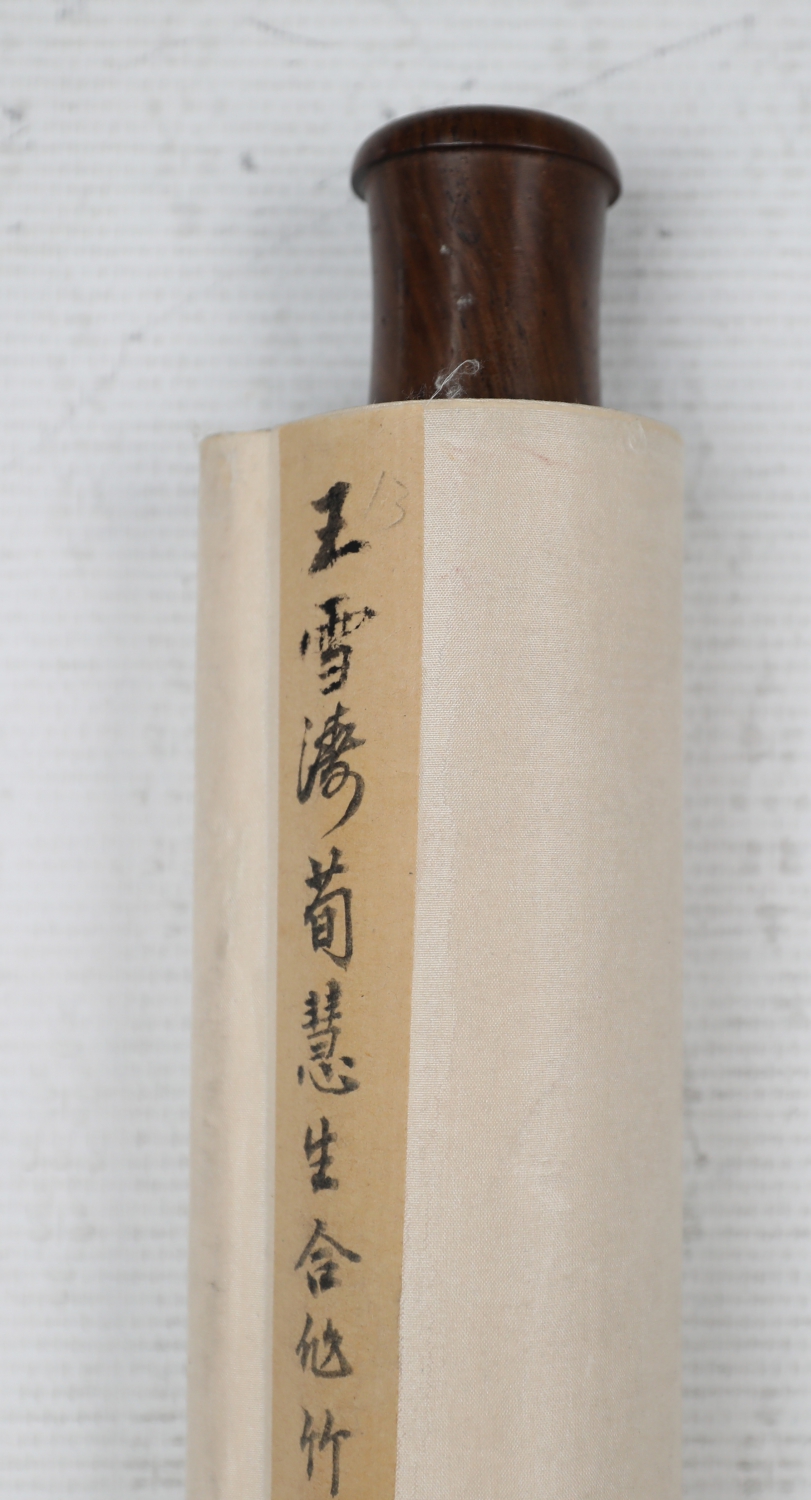 王雪濤荀慧生合作竹
13